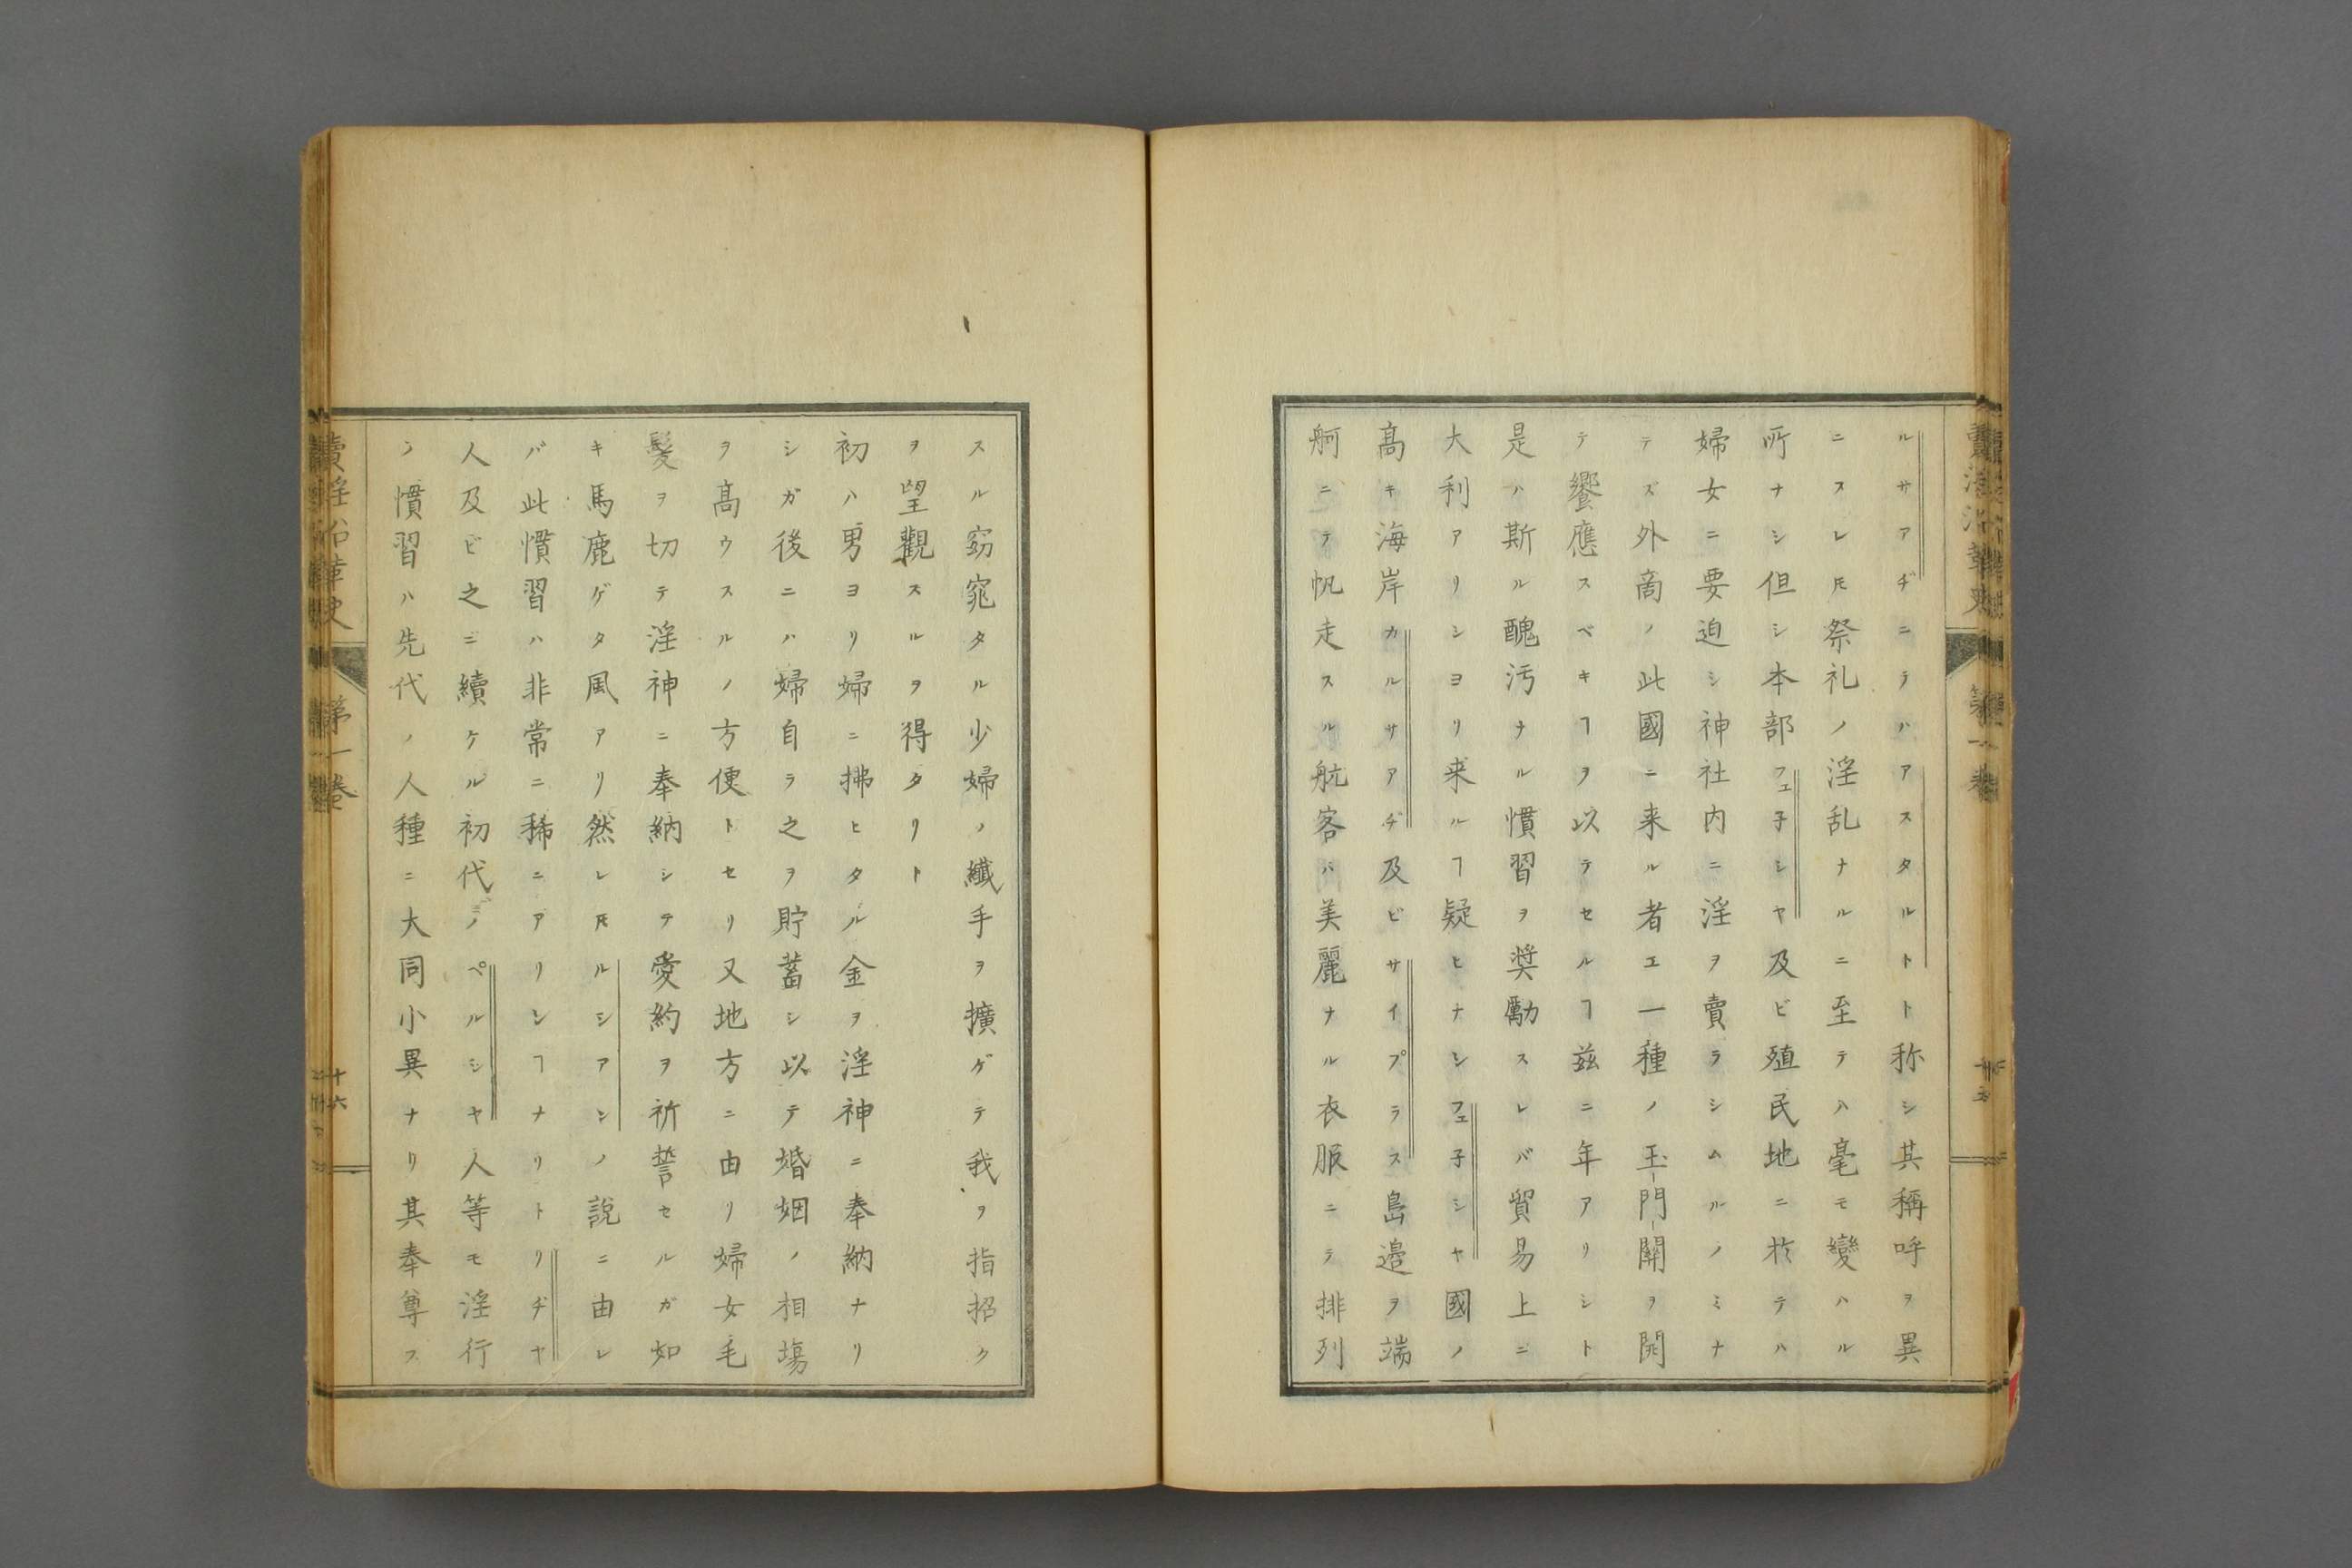 ルサアヂニテハアスタルトト称シ其稱呼ヲ異
ニスレ𪜈祭礼ノ淫乱ナルニ至テハ毫モ變ハル
所ナシ但シ本部フェ子シヤ及ビ殖民地ニ於テハ
婦女ニ要迫シ神社内ニ淫ヲ賣ラシムルノミナ
テズ外啇ノ此國ニ来ル者エ一種ノ玉門關ヲ開
テ饗應スベキヿヲ以テセルヿ茲ニ年アリシト
是ハ斯ル醜汚ナル慣習ヲ奨勵スレバ貿易上ニ
大利アリシヨリ来ルヿ疑ヒナシフェ子シヤ國ノ
高キ海岸カルサアヂ及ビサイプラス島邉ヲ端
舸ニテ帆走スル航客ハ美麗ナル衣服ニテ排列
スル窈窕タル少婦ノ纖手ヲ擴ゲテ我ヲ指招ク
ヲ望觀スルヲ得タリト
初ハ男ヨリ婦ニ拂ヒタル金ヲ淫神ニ奉納ナリ
シガ後ニハ婦自ラ之ヲ貯蓄シ以テ婚姻ノ相塲
ヲ高ウスルノ方便トセリ又地方ニ由リ婦女毛
髪ヲ切テ淫神ニ奉納シテ愛約ヲ祈誓セルガ如
キ馬鹿ゲタ風アリ然レ𪜈ルシアンノ説ニ由レ
バ此慣習ハ非常ニ稀ニアリシヿナリトリヂヤ
人及ビ之ニ續ケル初代ノペルシヤ人等モ淫行
ノ慣習ハ先代ノ人種ニ大同小異ナリ其奉尊ス
賣淫沿革史
第一巻
十六